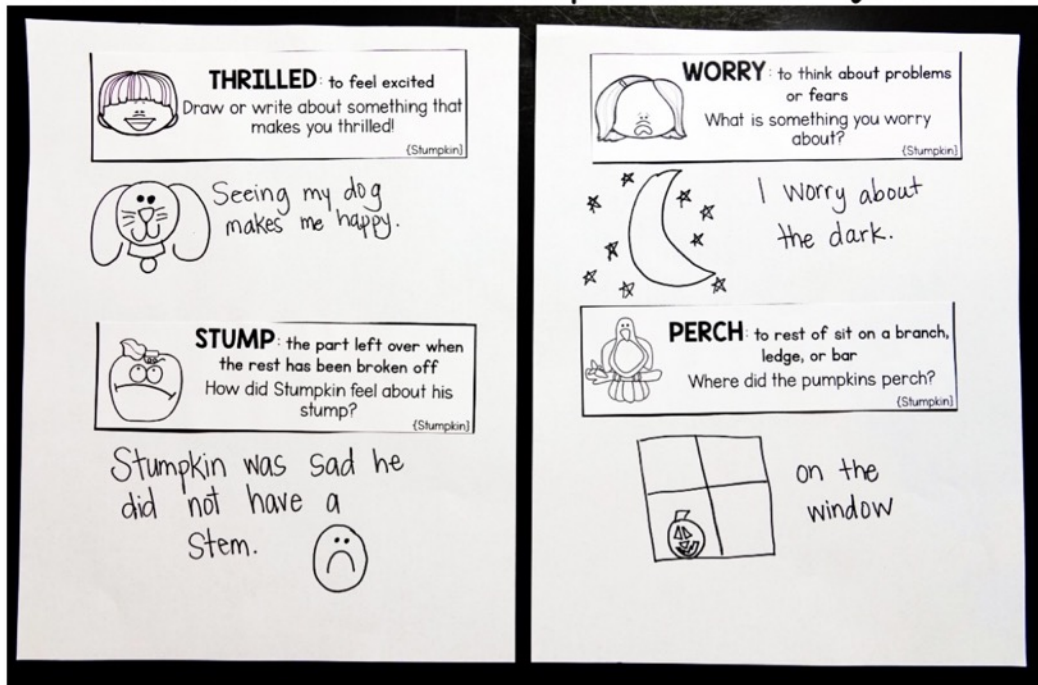 THRILLED: to feel excited
Draw or write about something that
makes you thrilled!
{Stumpkin}
Seeing my dog
makes me happy.
STUMP: the part left over when
the rest has been broken off
How did Stumpkin feel about his
stump?
{Stumpkin}
Stumpkin was sad he
did not have a
stem.
WORRY: to think about problems
or fears
What is something you worry
about?
{Stumpkin}
I worry about
the dark.
PERCH: to rest of sit on a branch,
ledge, or bar
Where did the pumpkins perch?
{Stumpkin}
on the
window